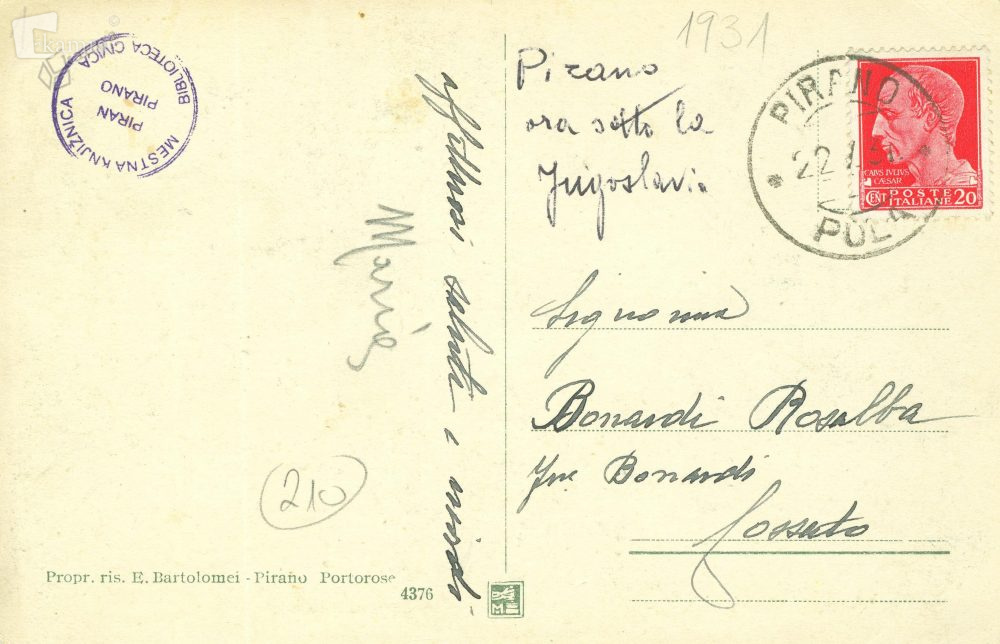 MESTNA KNJIŽNICA
PIRAN
PIRANO
BIBLIOTECA CIVICA
1931
Pirano
ora sotto la
Jugoslavia
PIRANO
22
POLA
CAIVS IVLIVS
CAESAR
CENT POSTE ITALIANE 20
Affettuosi saluti e
Maria
Signorina
Bonardi Rosalba
Bonardi
Cossato
210
Propr. ris. E. Bartolomei - Pirano Portorose
4376
M